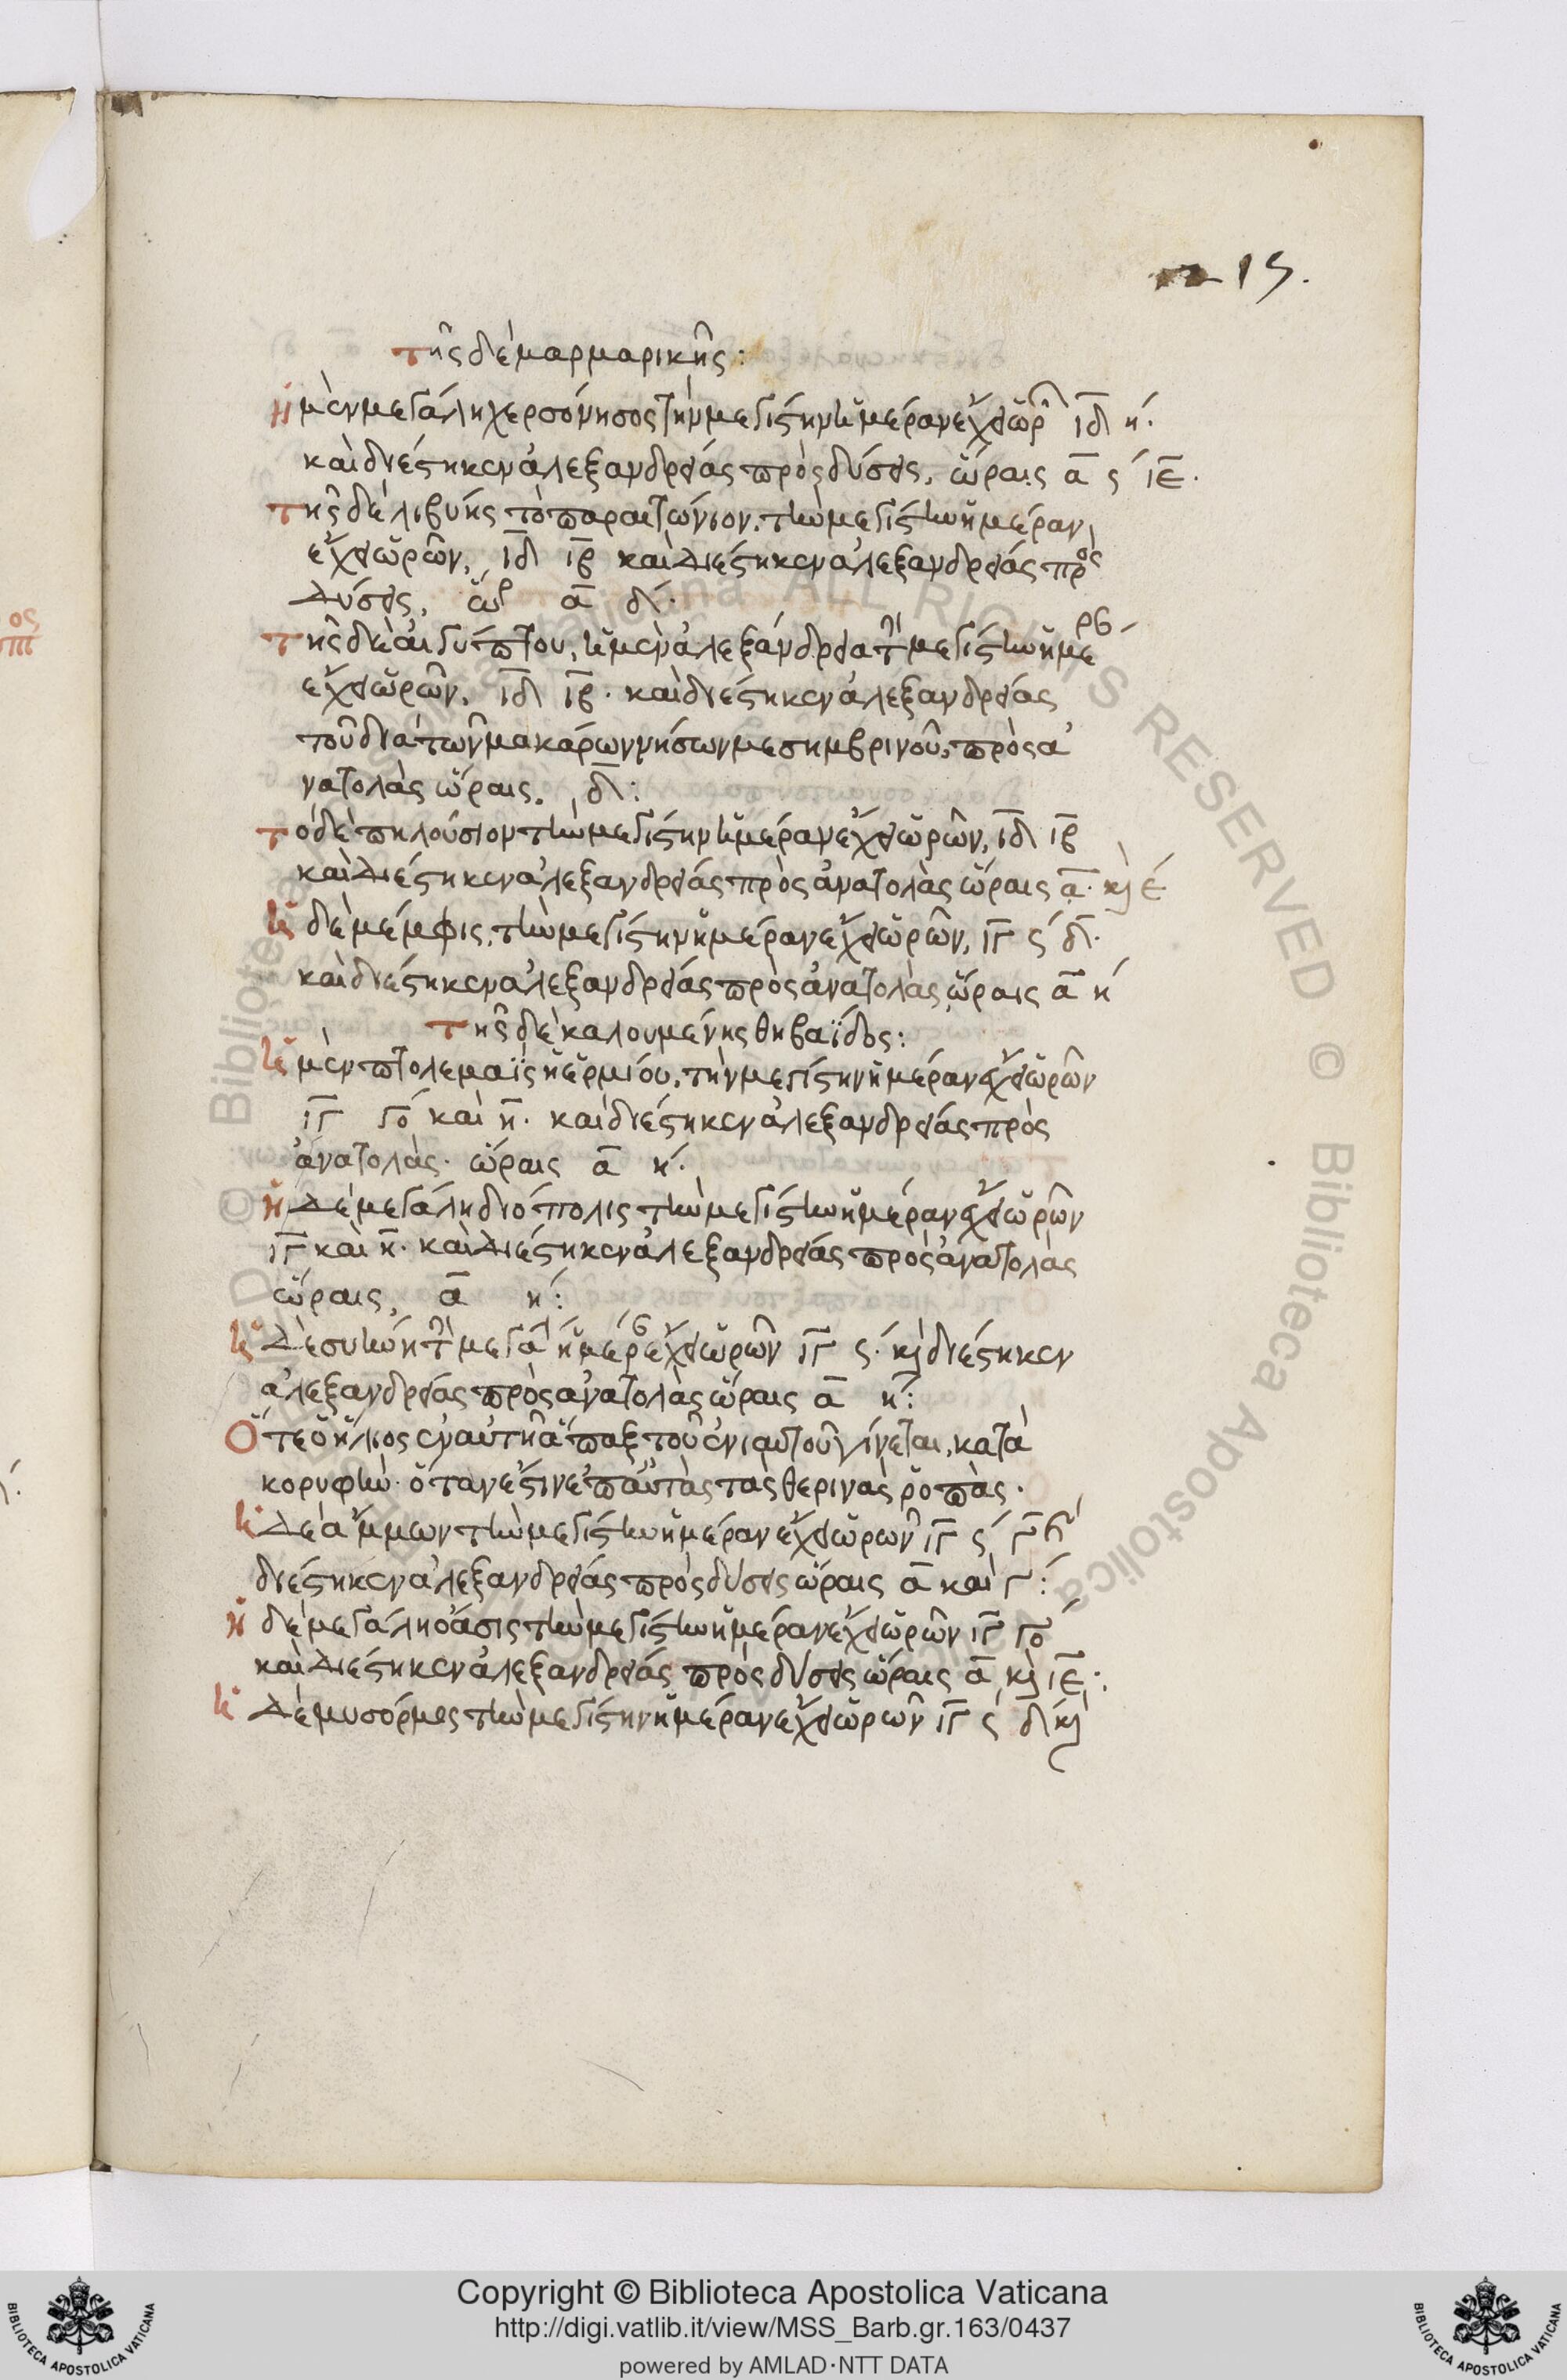 215.
της δὲ μαρμαρικῆς:
ἡ μὲν μεγάλη χερσόνησος τὴν μεγίστην ἡμέραν ἔχει ὡρ ιδ η΄.
καὶ διέστηκεν ἀλεξανδρείας πρὸς δύσεις, ὥραις α ς΄ ιε.
της δὲ λιβύης τὸ παραιτώνιον, τὴν μεγίστην ἡμέραν
ἔχει ὡρῶν, ιδ ιβ καὶ διέστηκεν ἀλεξανδρείας πρὸς
δύσεις, ὡρ α δ΄.
τῆς δὲ αἰγύπτου, ἡ μὲν ἀλεξάνδρεια τὴ μεγίστην ἡμε
ἔχει ὡρῶν, ιδ ιβ. καὶ διέστηκεν ἀλεξανδρείας
τοῦ διὰ τῶν μακάρων νήσων μεσημβρινοῦ, πρὸς ἀ
νατολὰς ὥραις, δ:
τὸ δὲ πηλούσιον τὴν μεγίστην ἡμέραν ἔχει ὡρῶν, ιδ ιβ
καὶ διέστηκεν ἀλεξανδρείας πρὸς ἀνατολὰς ὥραις α. κὶ ε΄
ἡ δὲ μέμφις, τὴν μεγίστην ἡμέραν ἔχει ὡρῶν, ιγ ς΄ δ.
καὶ διέστηκεν ἀλεξανδρείας πρὸς ἀνατολὰς ὥραις α η΄
τῆς δὲ καλουμένης θηβαΐδος:
ἡ μὲν πτολεμαῒς ἡ ἑρμίου, τὴν μεγίστην ἡμέραν ἔχει ὡρῶν
ιγ γο΄ καὶ η. καὶ διέστηκεν ἀλεξανδρείας πρὸς
ἀνατολὰς. ὥραις α η΄.
ἡ δὲ μεγάλη διόσπολις τὴν μεγίστην ἡμέραν ἔχει ὡρῶν
ιγ καὶ η. καὶ διέστηκεν ἀλεξανδρείας πρὸς ἀνατολὰς
ὥραις, α η΄:
ἡ δὲ συήνη τὴ μεγά ἡμέρ ἔχει ὡρῶν ιγ ς΄. κὶ διέστηκεν
ἀλεξανδρείας πρὸς ἀνατολὰς ὥραις α η:
Ὅτε ὁ ἥλιος ἐν αὐτῆ ἅπαξ τοῦ ἐνιαυτοῦ γίνεται, κατὰ
κορυφὴν. ὅταν ἔστιν ἐπ' αὐτὰς τὰς θερινὰς ῥοπὰς.
ἡ δὲ ἄμμων τὴν μεγίστην ἡμέραν ἔχει ὡρῶν ιγ ς΄
διέστηκεν ἀλεξανδρείας πρὸς δύσεις ὥραις α καὶ γ:
ἡ δὲ μεγάλη ὄασις τὴν μεγίστην ἡμέραν ἔχει ὡρῶν ιγ γο΄
καὶ διέστηκεν ἀλεξανδρείας πρὸς δύσεις ὥραις α κὶ ιε:
ἡ δὲ μυσόρμος τὴν μεγίστην ἡμέραν ἔχει ὡρῶν ιγ ς΄ δ κὶ
© Biblioteca Apostolica Vaticana ALL RIGHTS RESERVED © Biblioteca Apostolica
Copyright © Biblioteca Apostolica Vaticana
http://digi.vatlib.it/view/MSS_Barb.gr.163/0437
powered by AMLAD·NTT DATA
BIBLIOTECA APOSTOLICA VATICANA
BIBLIOTECA APOSTOLICA VATICANA